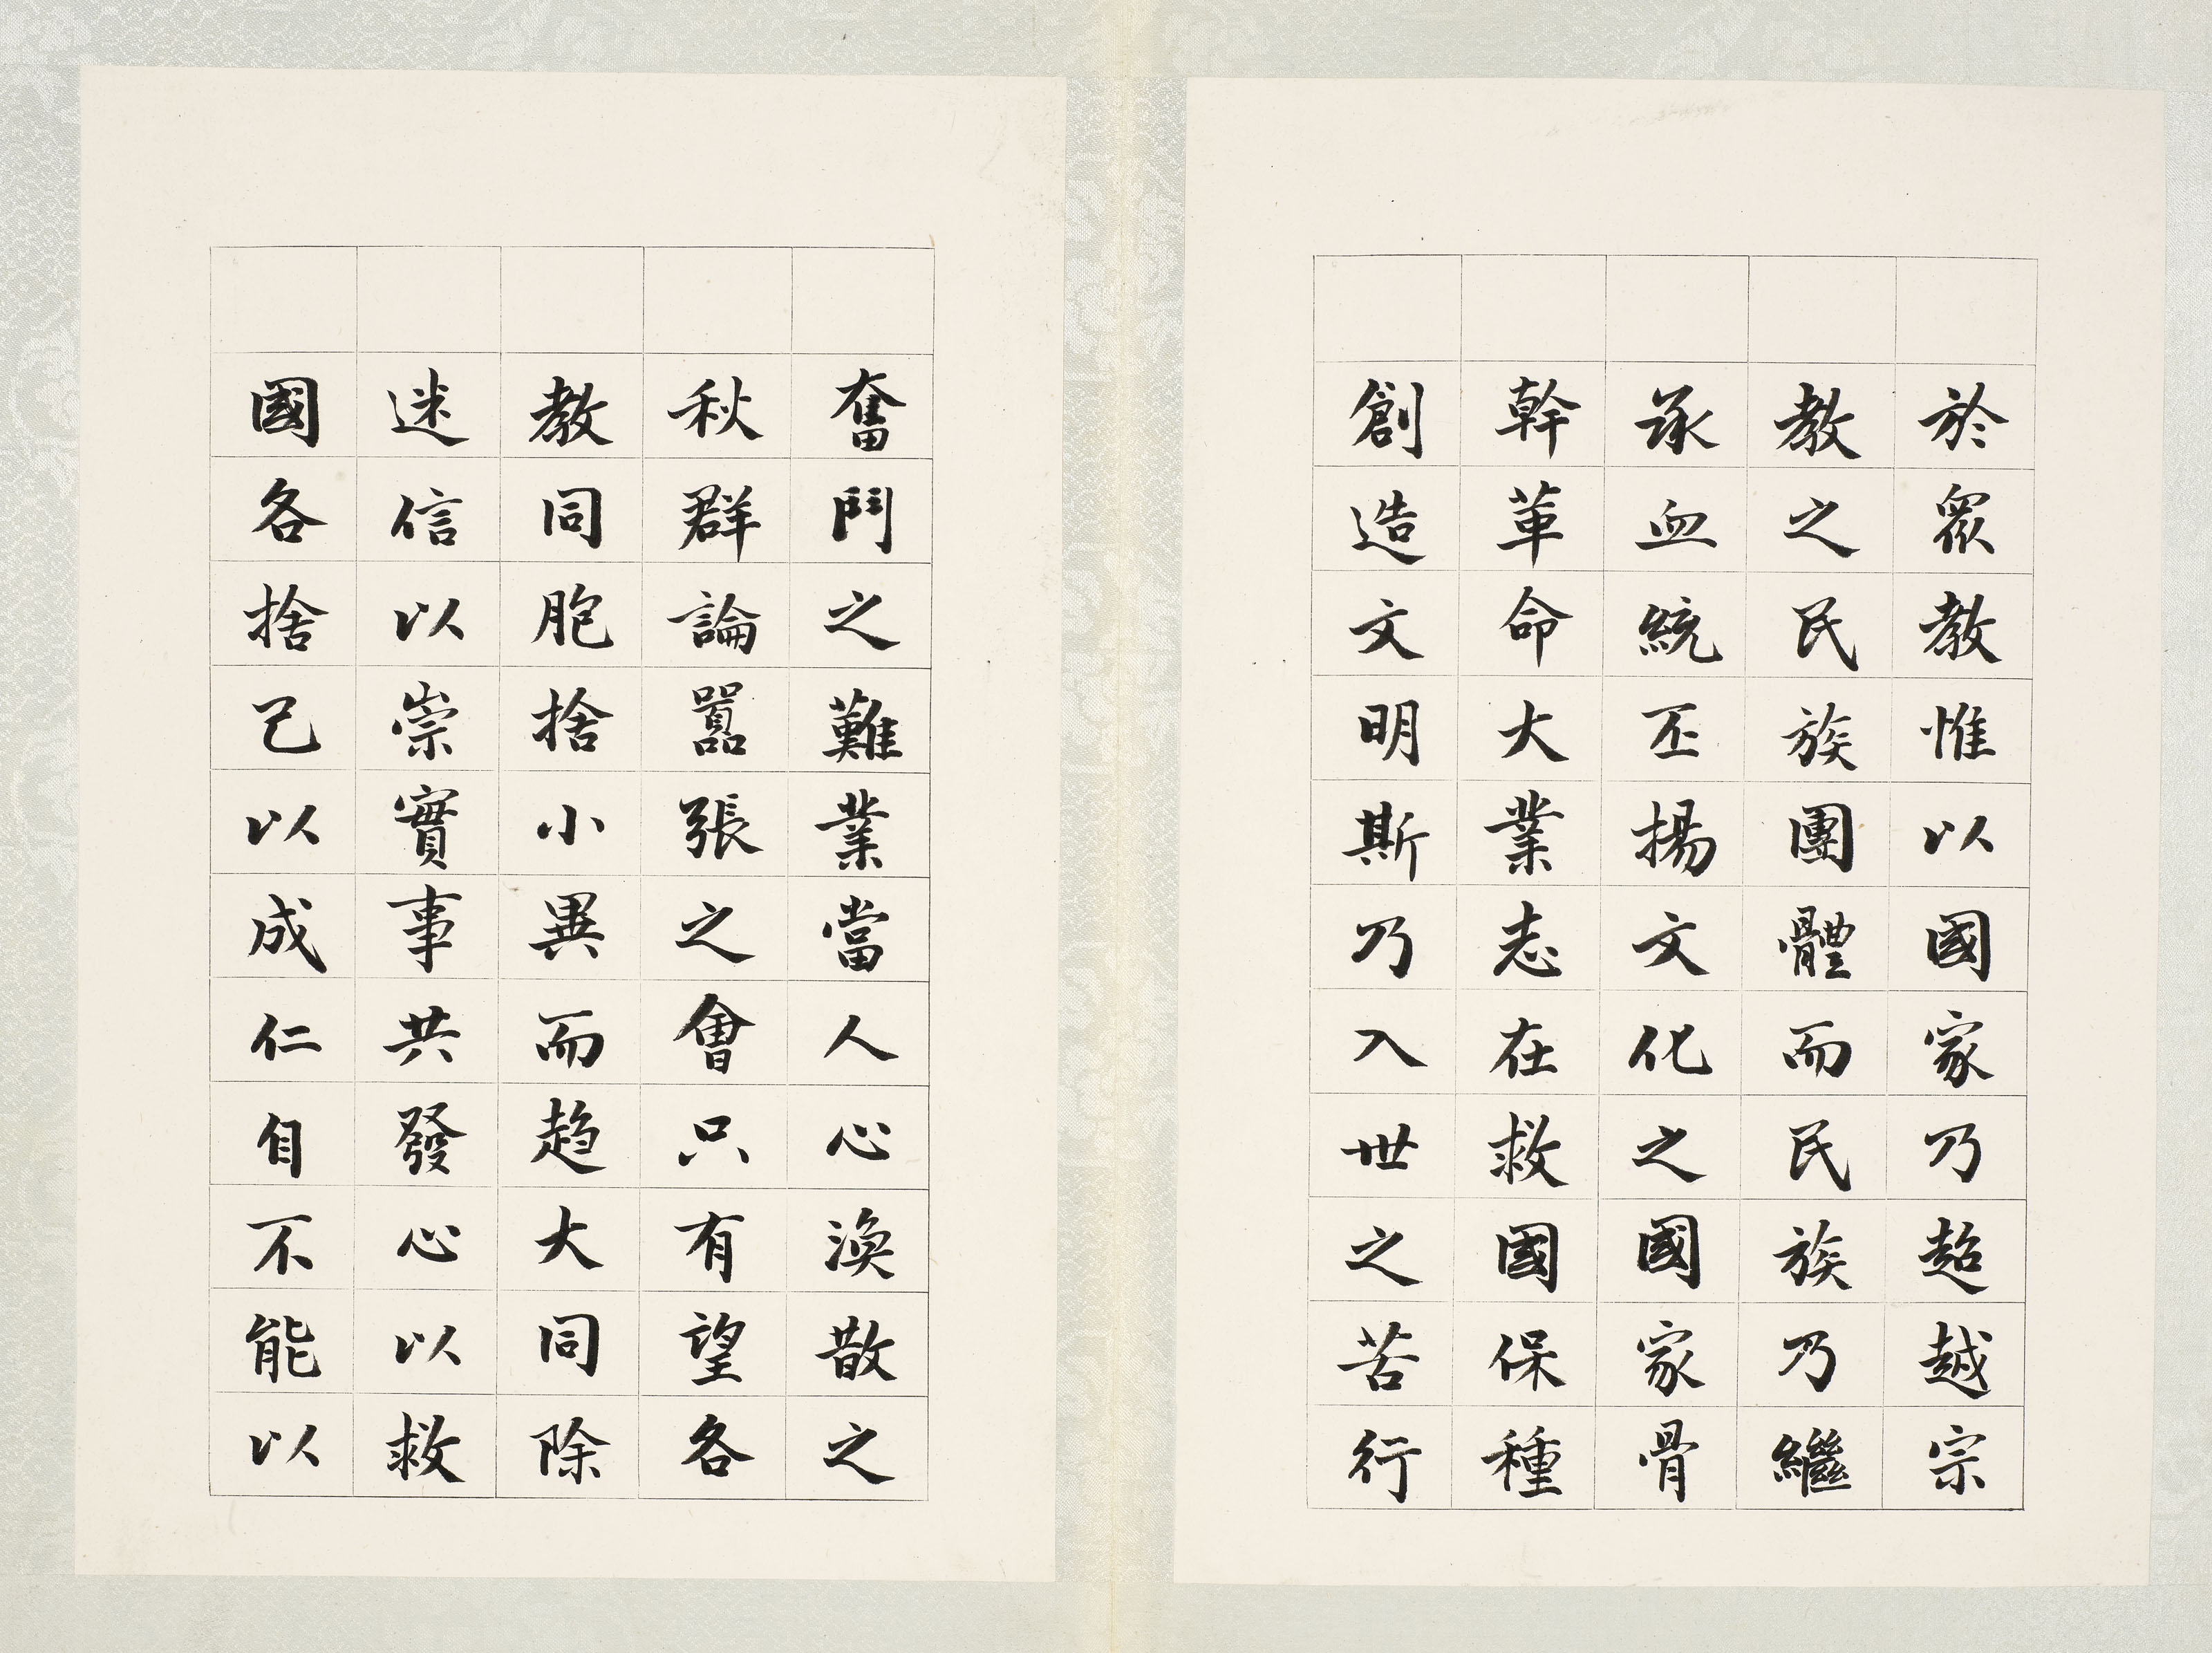 於眾教惟以國家乃超越宗
教之民族團體而民族乃繼
承血統丕揚文化之國家骨
幹革命大業志在救國保種
創造文明斯乃入世之苦行
奮鬥之難業當人心渙散之
秋群論囂張之會只有望各
教同胞捨小異而趨大同除
迷信以崇實事共發心以救
國各捨己以成仁自不能以